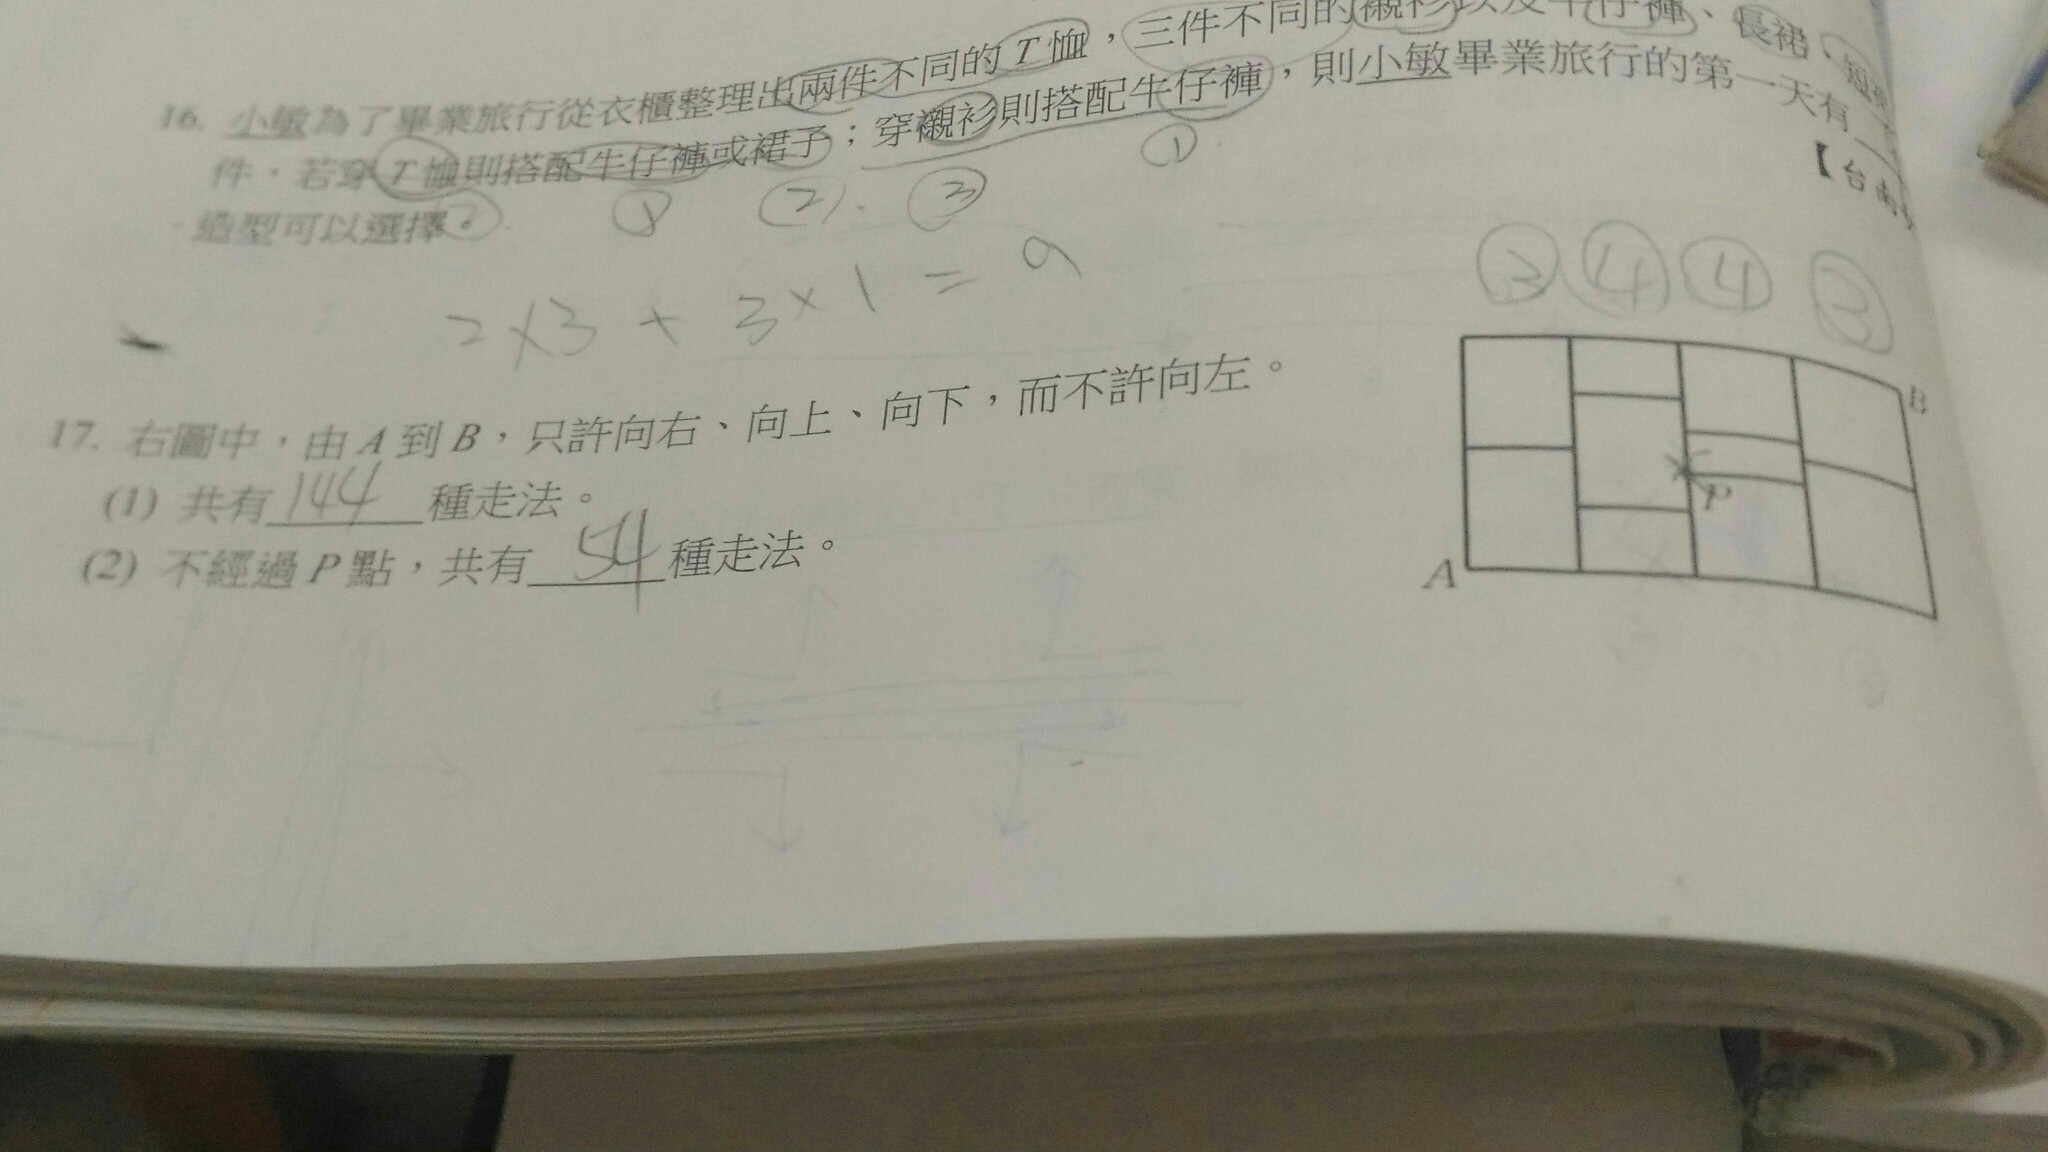 16. 小敏為了畢業旅行從衣櫃整理出兩件不同的T恤，三件不同的襯衫以及牛仔褲、長裙、短裙
件，若穿T恤則搭配牛仔褲或裙子；穿襯衫則搭配牛仔褲，則小敏畢業旅行的第一天有
造型可以選擇。
【台南
② ① ② ③ ①
2×3 + 3×1 = 9
17. 右圖中，由A到B，只許向右、向上、向下，而不許向左。
(1) 共有144種走法。
(2) 不經過P點，共有54種走法。
③ ④ ④ ③
B
P
A